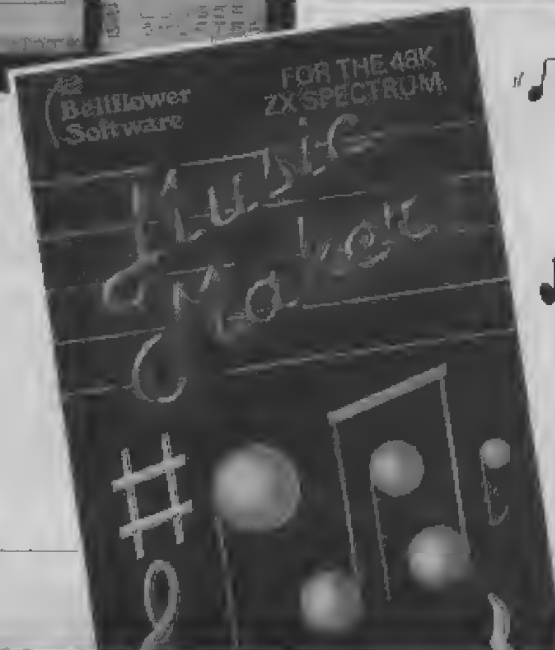 Bellflower
Software
FOR THE 48K
ZX SPECTRUM
Music
Maker